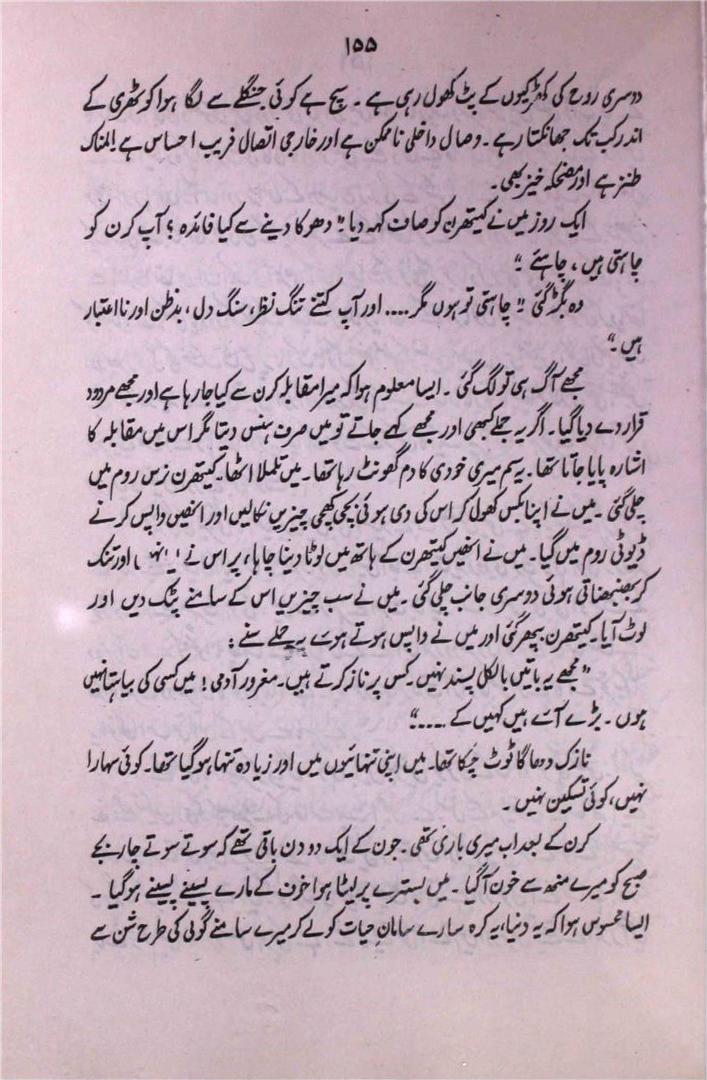 ۱۵۵
دوسری روح کی کھڑکیوں کے پٹ کھول رہی ہے ۔ سچ ہے کوئی جنگلے سے لگا ہوا کوٹھری کے
اندر کب تک جھانکتا رہے ۔ وصال داخلی ناممکن ہے اور خارجی اتصال فریب احساس ہے المناک
طنز ہے اور مضحکہ خیز بھی ۔
ایک روز میں نے کیتھرن کو صاف کہہ دیا " دھوکا دینے سے کیا فائدہ ؟ آپ کرن کو
چاہتی ہیں ، چاہئے "
وہ بگڑ گئی " چاہتی تو ہوں مگر .... اور آپ کتنے تنگ نظر، سنگ دل ، بدظن اور نااعتبار
ہیں ۔"
مجھے آگ ہی تو لگ گئی ۔ ایسا معلوم ہوا کہ میرا مقابلہ کرن سے کیا جا رہا ہے اور مجھے مردود
قرار دے دیا گیا ۔ اگر یہ جملے کبھی اور مجھے کہے جاتے تو میں صرف ہنس دیتا مگر اس میں مقابلہ کا
اشارہ پایا جاتا تھا ۔ یہ سم میری خودی کا دم گھونٹ رہا تھا ۔ میں تلملا اٹھا ۔ کیتھرن نرس روم میں
چلی گئی ۔ میں نے اپنا بکس کھول کر اس کی دی ہوئی بچی کھچی چیزیں نکالیں اور انھیں واپس کرنے
ڈیوٹی روم میں گیا ۔ میں نے انھیں کیتھرن کے ہاتھ میں لوٹا دینا چاہا ، پر اس نے اور تنک
کر بھنبھناتی ہوئی دوسری جانب چلی گئی ۔ میں نے سب چیزیں اس کے سامنے پٹک دیں اور
لوٹ آیا ۔ کیتھرن بپھر گئی اور میں نے واپس ہوتے ہوے یہ جملے سنے :
" مجھے یہ باتیں بالکل پسند نہیں ۔ کس پر ناز کرتے ہیں ۔ مغرور آدمی ! میں کسی کی بیاہتا نہیں
ہوں ۔ بڑے آئے ہیں کہیں کے ...."
نازک دھاگا ٹوٹ چکا تھا ۔ میں اپنی تنہائیوں میں اور زیادہ تنہا ہو گیا تھا ۔ کوئی سہارا
نہیں ، کوئی تسکین نہیں ۔
کرن کے بعد اب میری باری تھی ۔ جون کے ایک دو دن باقی تھے کہ سوتے سوتے چار بجے
صبح کو میرے منھ سے خون آ گیا ۔ میں بسترے پر لیٹا ہوا خوف کے مارے پسینے پسینے ہو گیا ۔
ایسا محسوس ہوا کہ یہ دنیا ، یہ کرہ سارے سامان حیات کو لے کر میرے سامنے گولی کی طرح شن سے